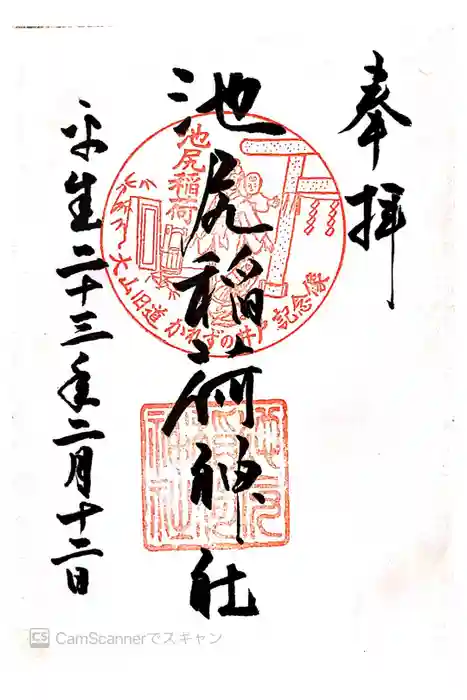 奉拝
池尻稲荷神社
平成二十三年二月十二日
池尻稲荷
大山旧道 かれずの井戸 記念像
CamScannerでスキャン